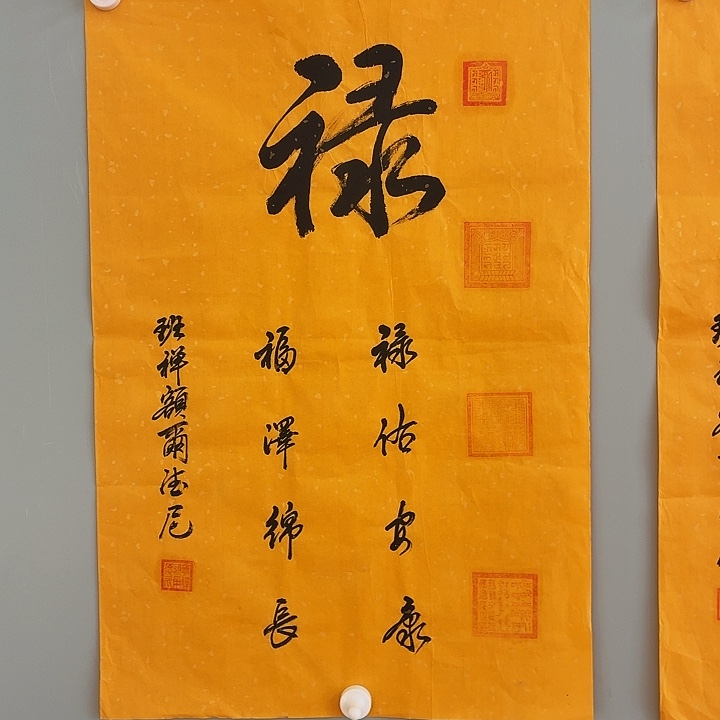 禄
禄佑安康
福澤綿長
班禅額爾德尼